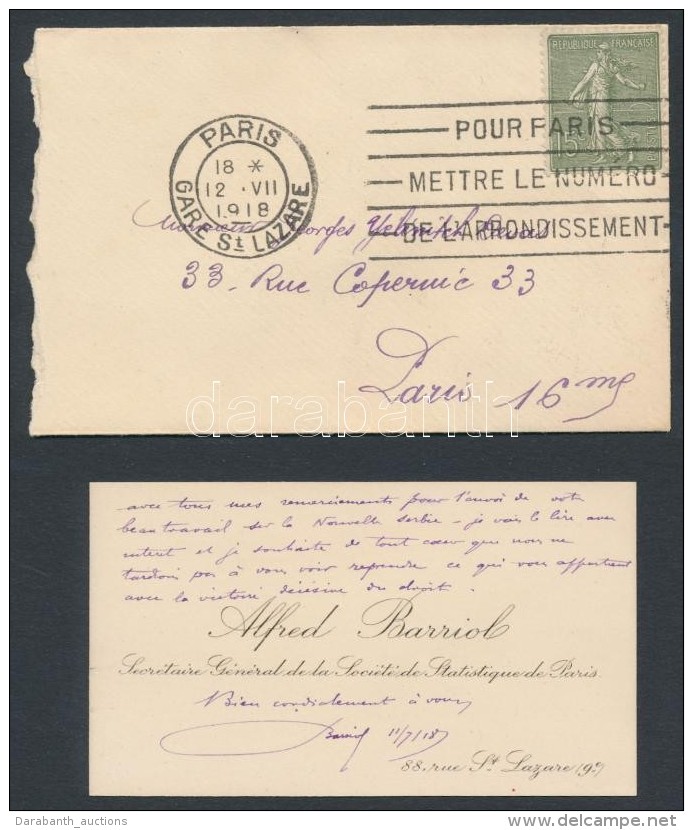 RÉPUBLIQUE FRANÇAISE
15
PARIS
18 *
12 · VII
1918
GARE St LAZARE
POUR PARIS
METTRE LE NUMÉRO
DE L'ARRONDISSEMENT
Monsieur Georges
33. Rue Copernic 33
Paris 16me
darabanth
avec tous mes remerciements pour l'envoi de votre
beau travail sur la Nouvelle Serbie - je vais le lire avec
intérêt et je souhaite de tout cœur que nous ne
tardions pas à vous voir reprendre ce qui vous appartient
avec la victoire décisive du droit.
Alfred Barriol
Secrétaire Général de la Société de Statistique de Paris.
Bien cordialement à vous
Barriol 11/7/18
88, rue St Lazare (9e)
Darabanth_auctions
delcampe.net